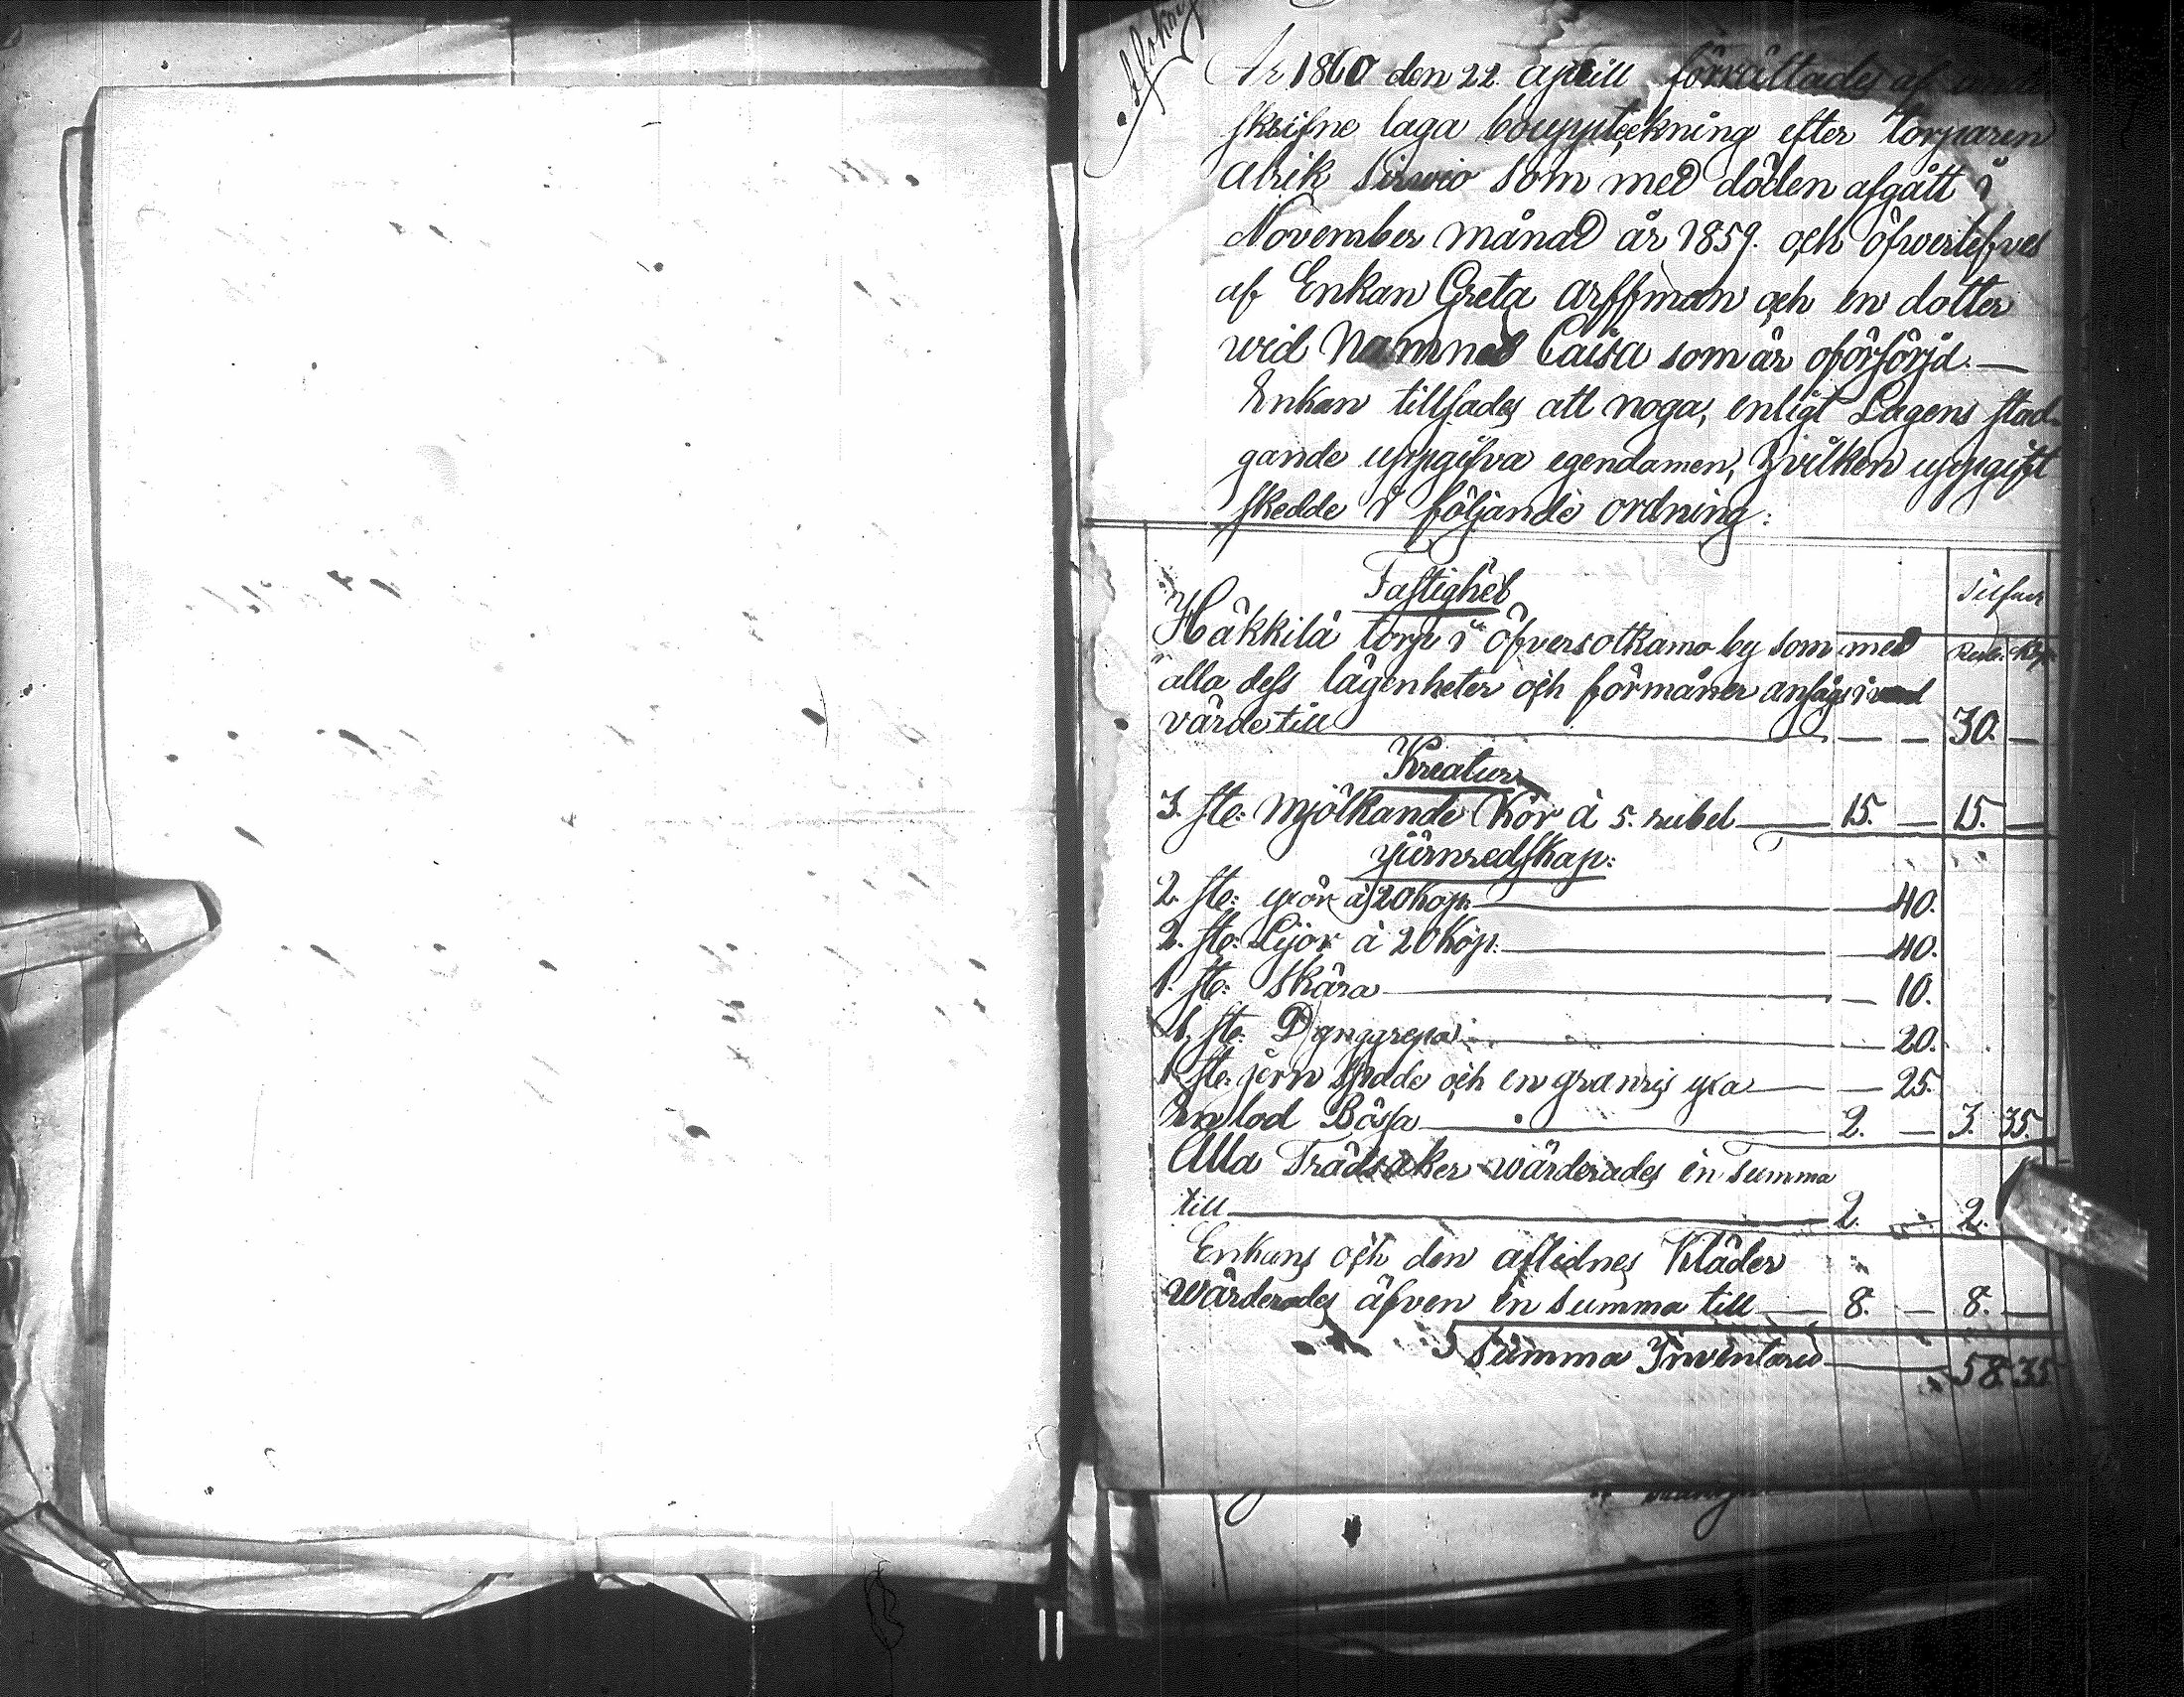 År 1860 den 22. aprill förrättades af
skrifne laga bouppteckning efter torparen
Alrik Sirwio som med döden afgått i
November månad år 1859. och öfwerlefves
af Enkan Greta Arffman och en dotter
wid Namnet Caisa som är oförsörjd. —
Enkan tillsades att noga, enligt Lagens stad-
gande uppgifva egendomen, hvilken uppgift
skedde i följande ordning:
Silfver
Fastighet
Rub. Kop.
Häkkilä torp i Öfversotkamo by som med
alla dess lägenheter och förmåner ansågs i
värde till — — 30. —
Kreatur
3. ste: Mjölkande Kor à 5. rubel — 15. — 15. —
Järnredskap:
2. ste: yxor à 20 Kop. — 40.
2. ste: Lijor à 20 Kop. — 40.
1. ste: Skära — 10.
1. ste: Dynggrepa — 20.
1. ste: jern Spade och en granris yxa — 25.
En lod Bössa — 2. — 3. 35.
Alla Trädsaker wärderades in summa
till — 2. — 2.
Enkans och den aflidnes Kläder
Wärderades äfven in summa till — 8. — 8. —
Summa Inventarii — 58. 35.